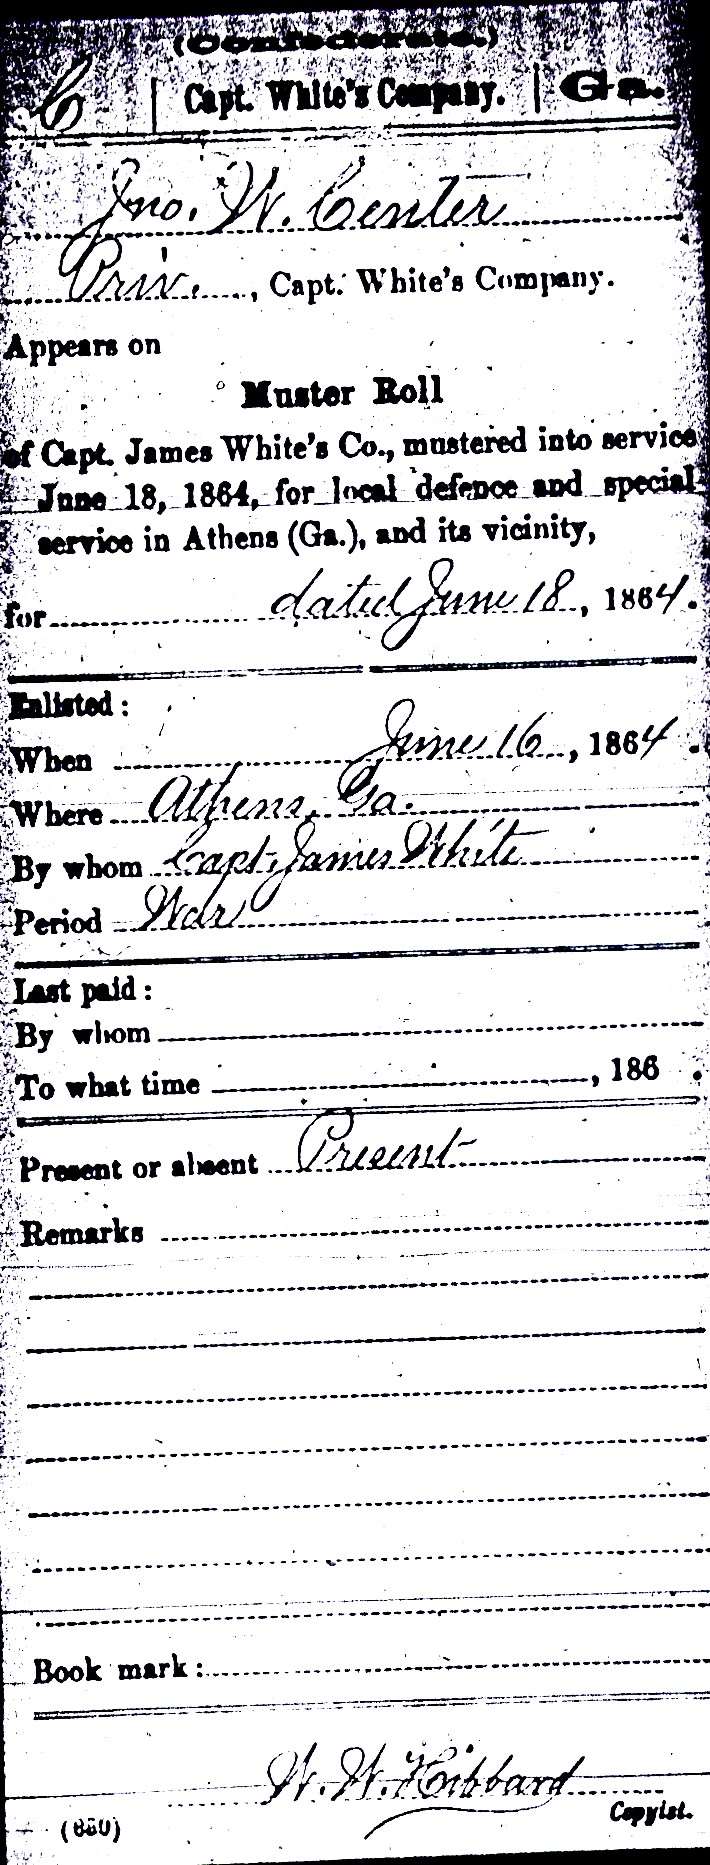 (Confederate.)
C | Capt. White's Company. | Ga.
Jno. W. Center
Priv. , Capt. White's Company.
Appears on
Muster Roll
of Capt. James White's Co., mustered into service
June 18, 1864, for local defence and special
service in Athens (Ga.), and its vicinity,
for dated June 18, 1864.
Enlisted:
When June 16, 1864.
Where Athens, Ga.
By whom Capt. James White
Period War
Last paid:
By whom
To what time , 186 .
Present or absent Present
Remarks
Book mark:
W. W. Hibbard
Copyist.